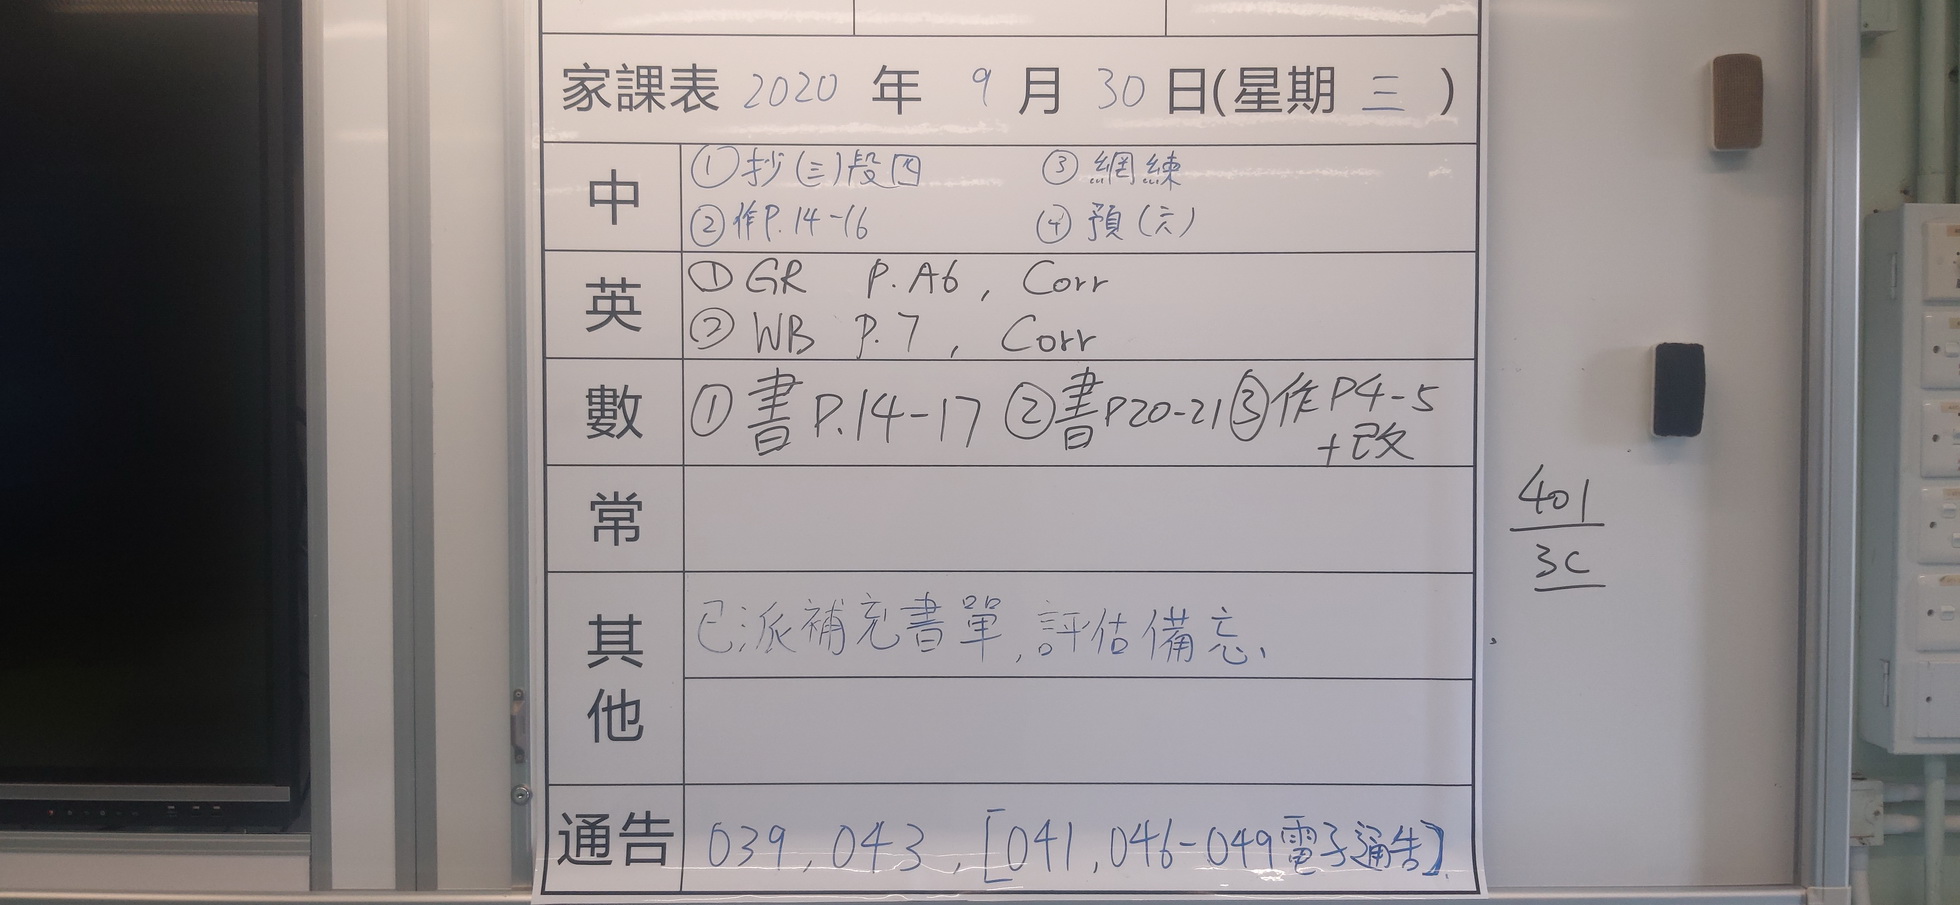 家課表 2020 年 9 月 30 日(星期 三 )
中
①抄(三)段四 ③網練
②作P.14-16 ④預(六)
英
①GR P.A6, Corr
②WB P.7, Corr
數
①書P.14-17 ②書P20-21 ③作P4-5
+改
常
其他
已派補充書單,評估備忘、
通告
039,043,[041,046-049電子通告]
401
3C